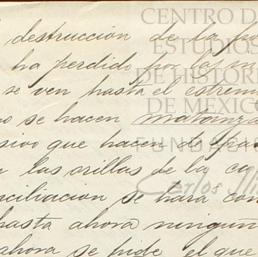 destruccion de la
ha perdido por las
se ven hasta el estremo
no se hacen matanzas
sivo que hacen de
en las orillas de la
nciliacion se hara con
hasta ahora ningun
ahora se pide el que
CENTRO D
ESTUDIOS
DE HISTOR
DE MEXIC
FUNDACI
Carlos Sli